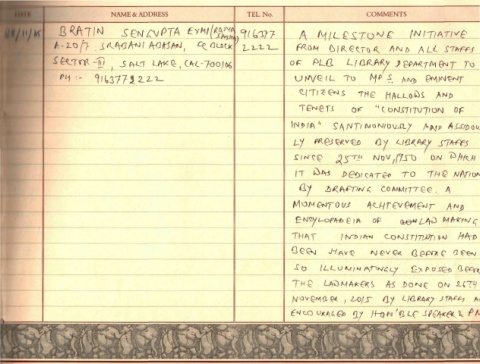 DATE NAME & ADDRESS TEL. No. COMMENTS
BRATIN SENGUPTA EXMP 916377
A-20/7 SRABANI ABASAN, EC BLOCK 2222
SECTOR-II, SALT LAKE, CAL-700106
PH :- 9163772222
A MILESTONE INITIATIVE
FROM DIRECTOR AND ALL STAFFS
OF PLB LIBRARY DEPARTMENT TO
UNVEIL TO MPS AND EMINENT
CITIZENS THE HALLOWS AND
TENETS OF "CONSTITUTION OF
INDIA" SANTIMONIOUSLY AND ASSIDOU
LY PRESERVED BY LIBRARY STAFFS
SINCE 25TH NOV, 1950 ON WHICH
IT WAS DEDICATED TO THE NATION
BY DRAFTING COMMITTEE. A
MOMENTOUS ACHIEVEMENT AND
ENCYLOPADEIA OF LAW MAKING
THAT INDIAN CONSTITUTION HAD
BEEN HAVE NEVER BEFORE BEEN
SO ILLUMINATINGLY EXPOSED BEFOR
THE LAWMAKERS AS DONE ON 26TH
NOVEMBER, 2015 BY LIBRARY STAFFS A
ENCOURALED BY HON'BLE SPEAKER & PM